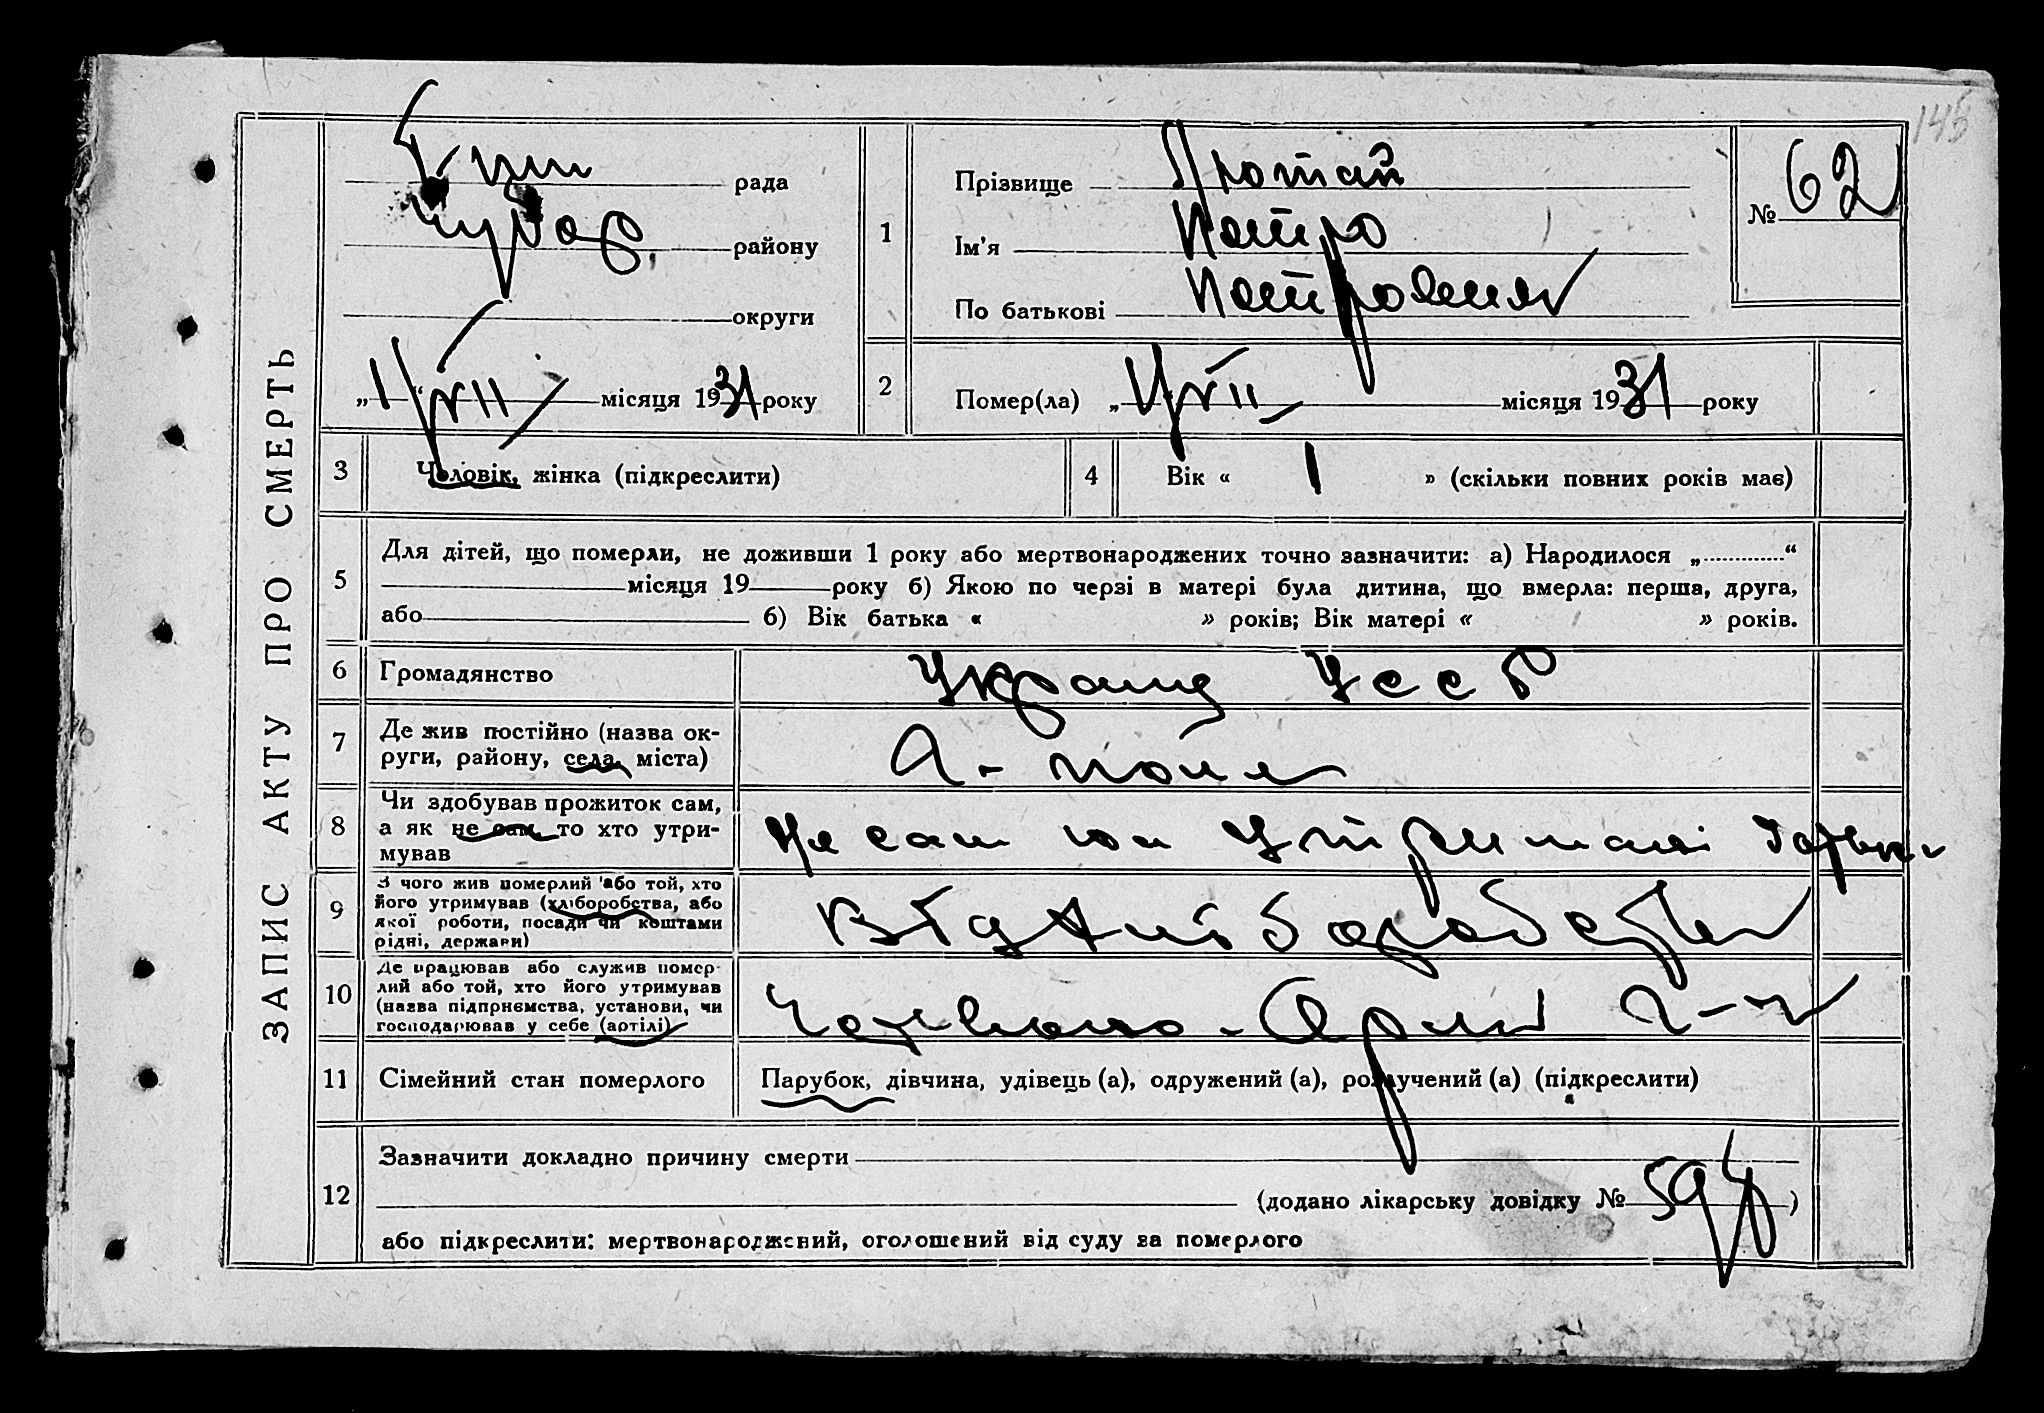 145
ЗАПИС АКТУ ПРО СМЕРТЬ
рада
району
округи
„1“ VIII місяця 1931 року
1
Прізвище Протай
Ім'я Петро
По батькові Петрович
№ 62
2
Помер(ла) „ VIII місяця 1931 року
3
Чоловік, жінка (підкреслити)
4
Вік « 1 » (скільки повних років має)
5
Для дітей, що померли, не доживши 1 року або мертвонароджених точно зазначити: а) Народилося „ “
місяця 19 року б) Якою по черзі в матері була дитина, що вмерла: перша, друга,
або б) Вік батька « » років; Вік матері « » років.
6
Громадянство
Україна УССР
7
Де жив постійно (назва ок-
руги, району, села, міста)
8
Чи здобував прожиток сам,
а як не сам то хто утри-
мував
Не сам на утриманні
9
З чого жив померлий або той, хто
його утримував (хліборобства, або
якої роботи, посади чи коштами
рідні, держави)
Від хліборобства
10
Де працював або служив помер-
лий або той, хто його утримував
(назва підприємства, установи, чи
господарював у себе (артілі)
11
Сімейний стан померлого
Парубок, дівчина, удівець (а), одружений (а), розлучений (а) (підкреслити)
12
Зазначити докладно причину смерти
(додано лікарську довідку № 594)
або підкреслити: мертвонароджений, оголошений від суду за померлого